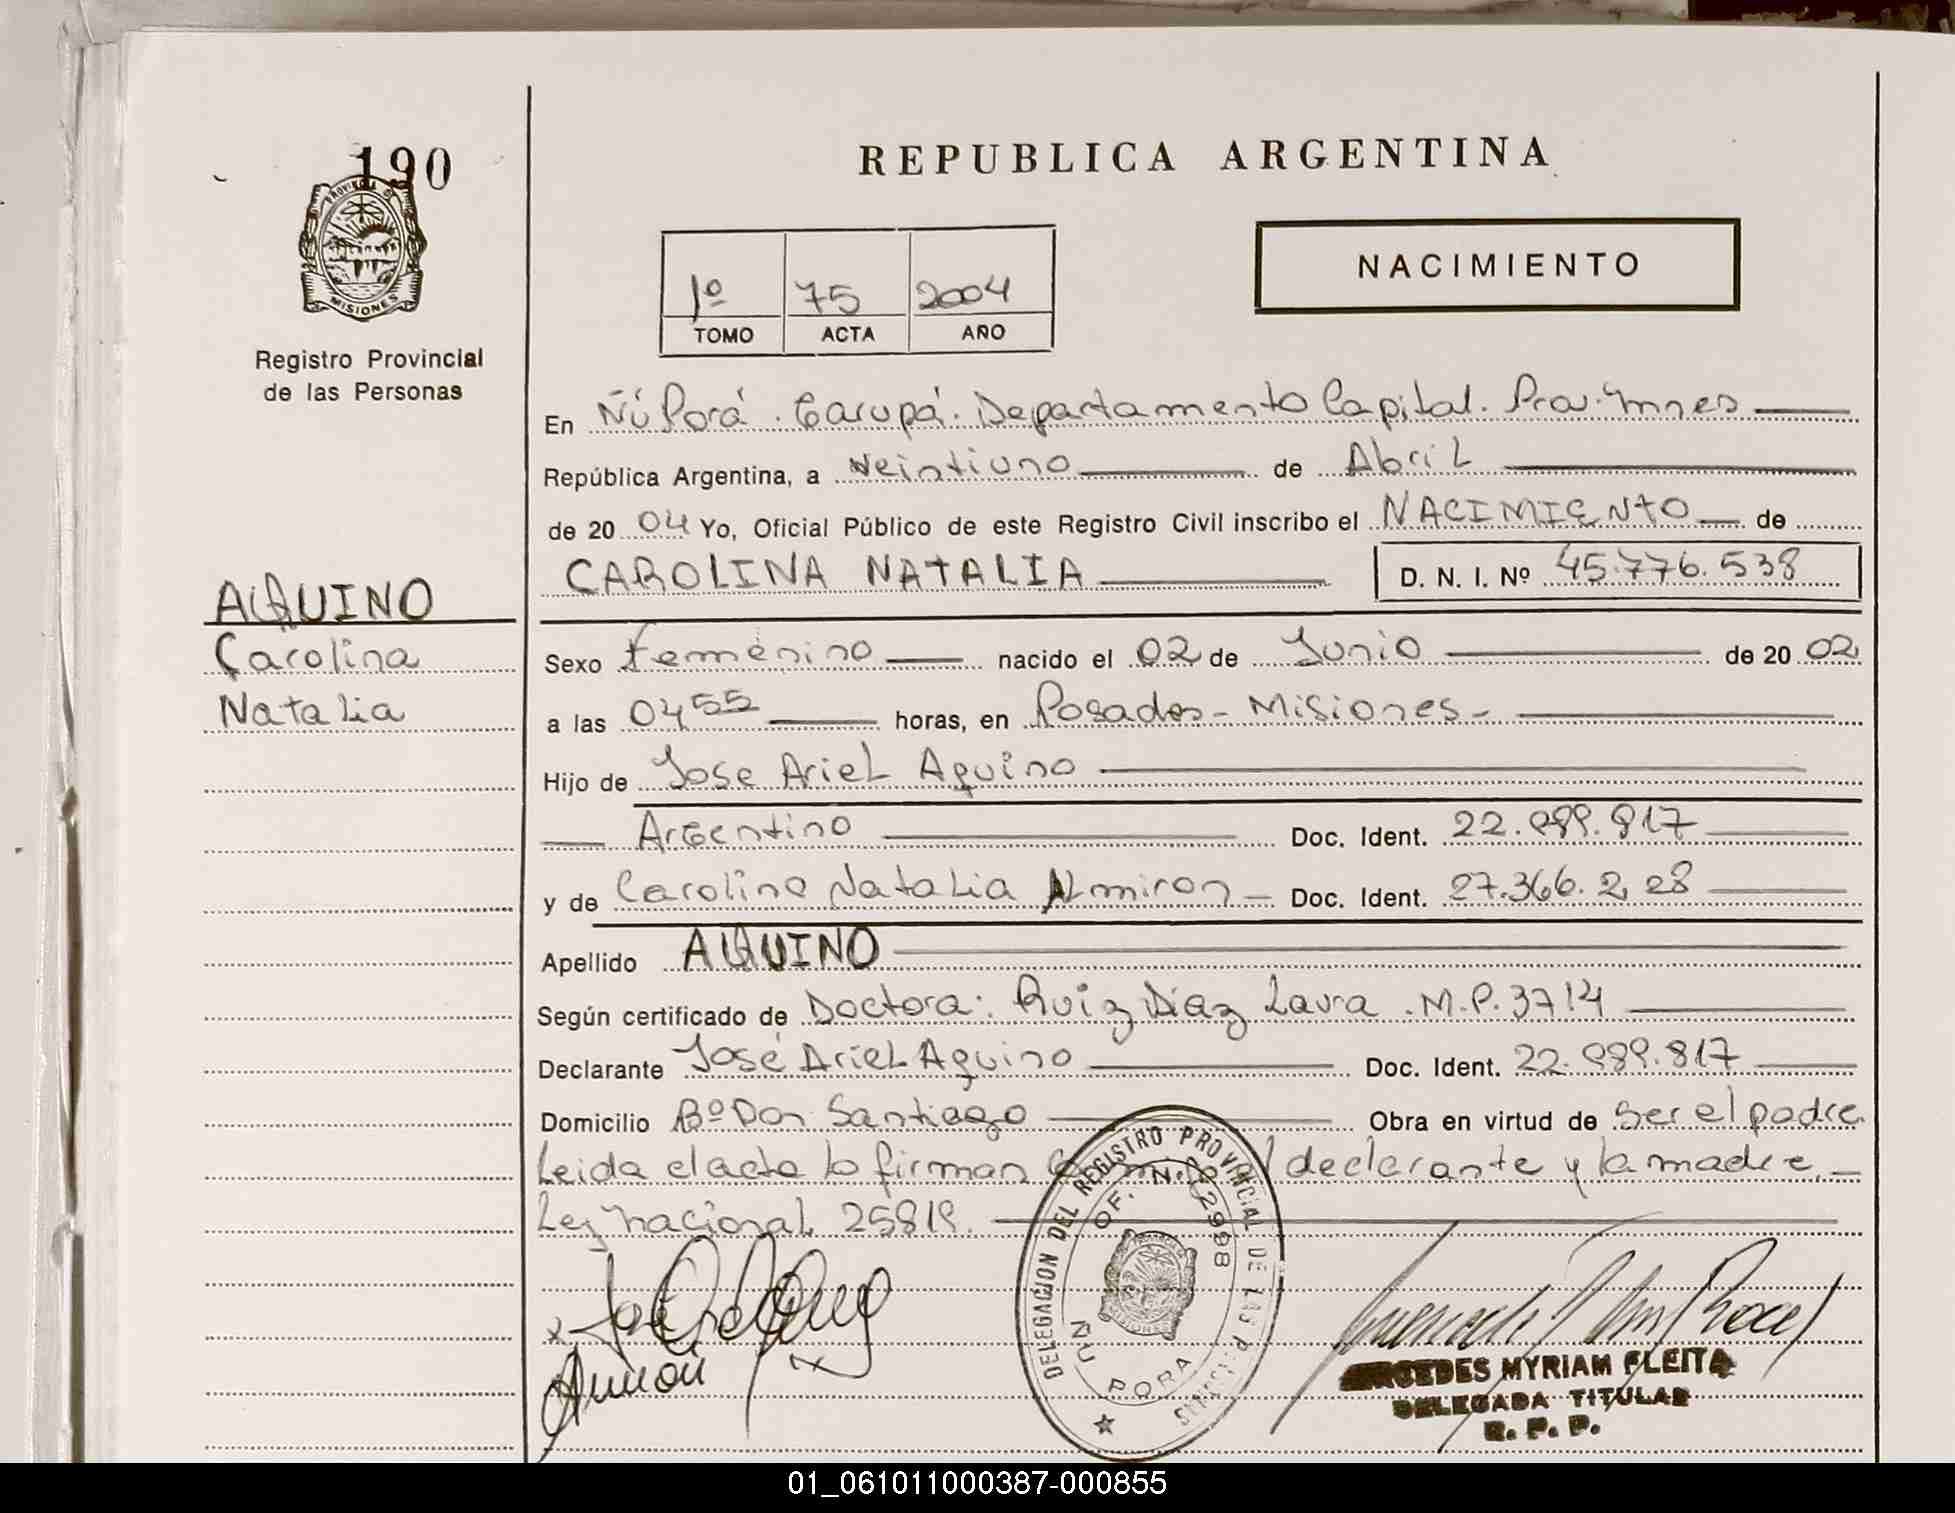 190
PROVINCIA DE
MISIONES
Registro Provincial
de las Personas
REPUBLICA ARGENTINA
1º 75 2004
TOMO ACTA AÑO
NACIMIENTO
En Ñú Porá. Garupá. Departamento Capital. Prov. Mnes
República Argentina, a Veintiuno de Abril
de 20 04 Yo, Oficial Público de este Registro Civil inscribo el NACIMIENTO de
CAROLINA NATALIA D. N. I. Nº 45.776.538
AQUINO
Carolina
Natalia
Sexo Femenino nacido el 02 de Junio de 20 02
a las 0455 horas, en Posadas - Misiones -
Hijo de Jose Ariel Aquino
Argentino Doc. Ident. 22.989.817
y de Carolina Natalia Almiron Doc. Ident. 27.366.228
Apellido AQUINO
Según certificado de Doctora: Ruiz Diaz Laura . M.P. 3714
Declarante José Ariel Aquino Doc. Ident. 22.989.817
Domicilio Bº Don Santiago Obra en virtud de Ser el padre
Leida el acta lo firman declarante y la madre.
Ley Nacional 25819.
DELEGACION DEL REGISTRO PROVINCIAL DE LAS PERSONAS
OF. N. 2998
ÑU PORA
MYRIAM FLEITA
DELEGADA TITULAR
R. P. P.
01_061011000387-000855